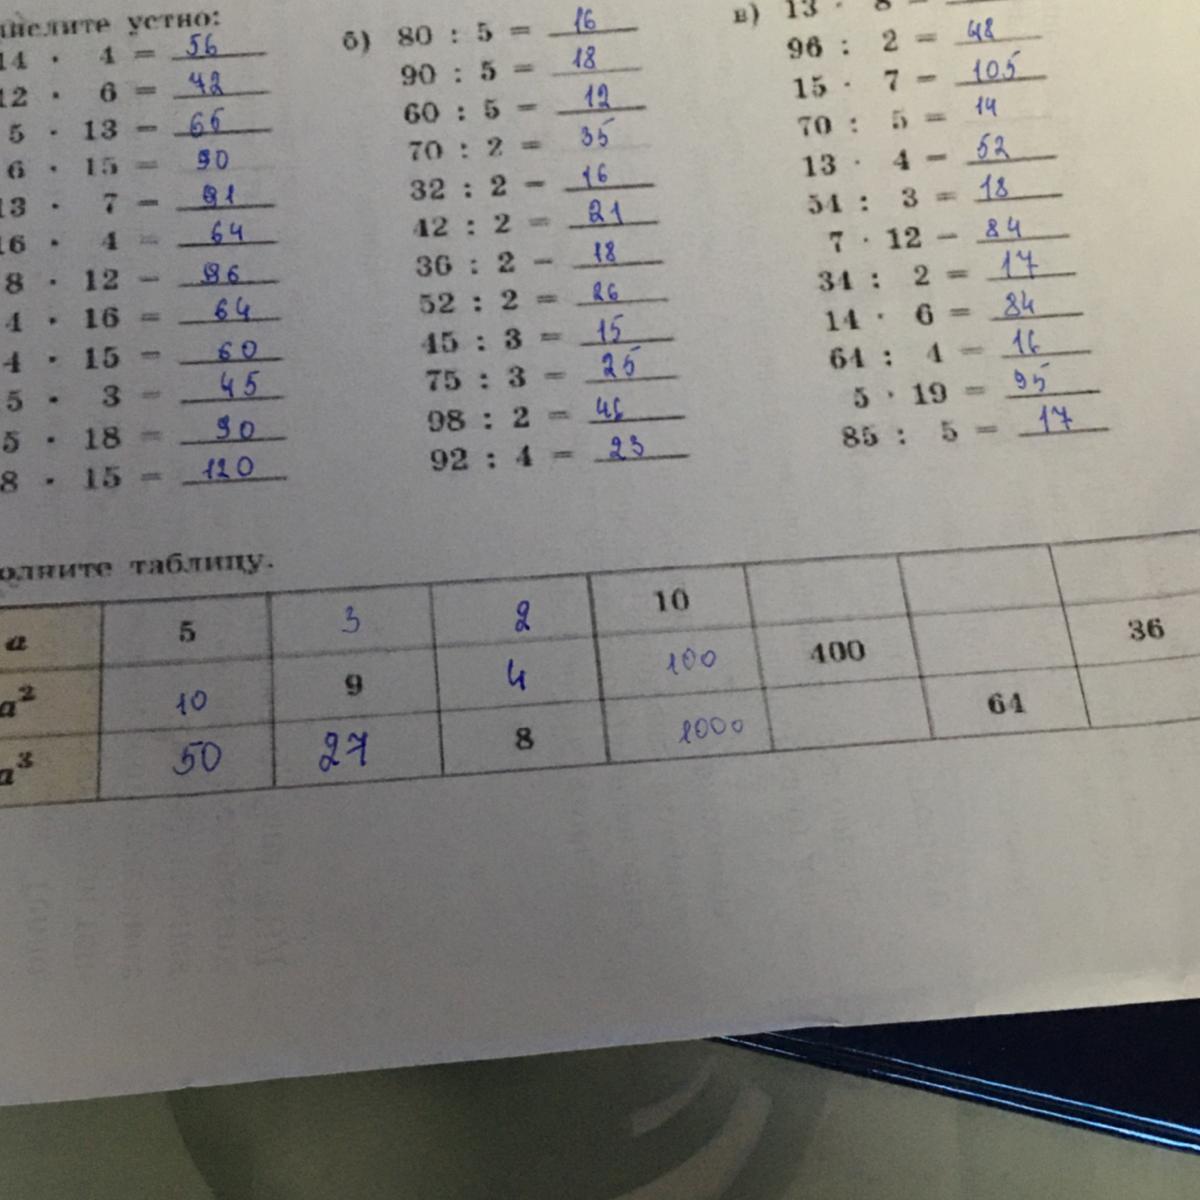 числите устно:
14 · 4 = 56
12 · 6 = 72
5 · 13 = 65
6 · 15 = 90
13 · 7 = 91
16 · 4 = 64
8 · 12 = 96
4 · 16 = 64
4 · 15 = 60
5 · 3 = 45
5 · 18 = 90
8 · 15 = 120
б) 80 : 5 = 16
90 : 5 = 18
60 : 5 = 12
70 : 2 = 35
32 : 2 = 16
42 : 2 = 21
36 : 2 = 18
52 : 2 = 26
45 : 3 = 15
75 : 3 = 25
98 : 2 =
92 : 4 = 23
в) 13 · 8 =
96 : 2 = 48
15 · 7 = 105
70 : 5 = 14
13 · 4 = 52
54 : 3 = 18
7 · 12 = 84
34 : 2 = 17
14 · 6 = 84
64 : 4 = 16
5 · 19 = 95
85 : 5 = 17
олните таблицу.
a 5 3 2 10
a² 10 9 4 100 400 36
a³ 50 27 8 1000 64